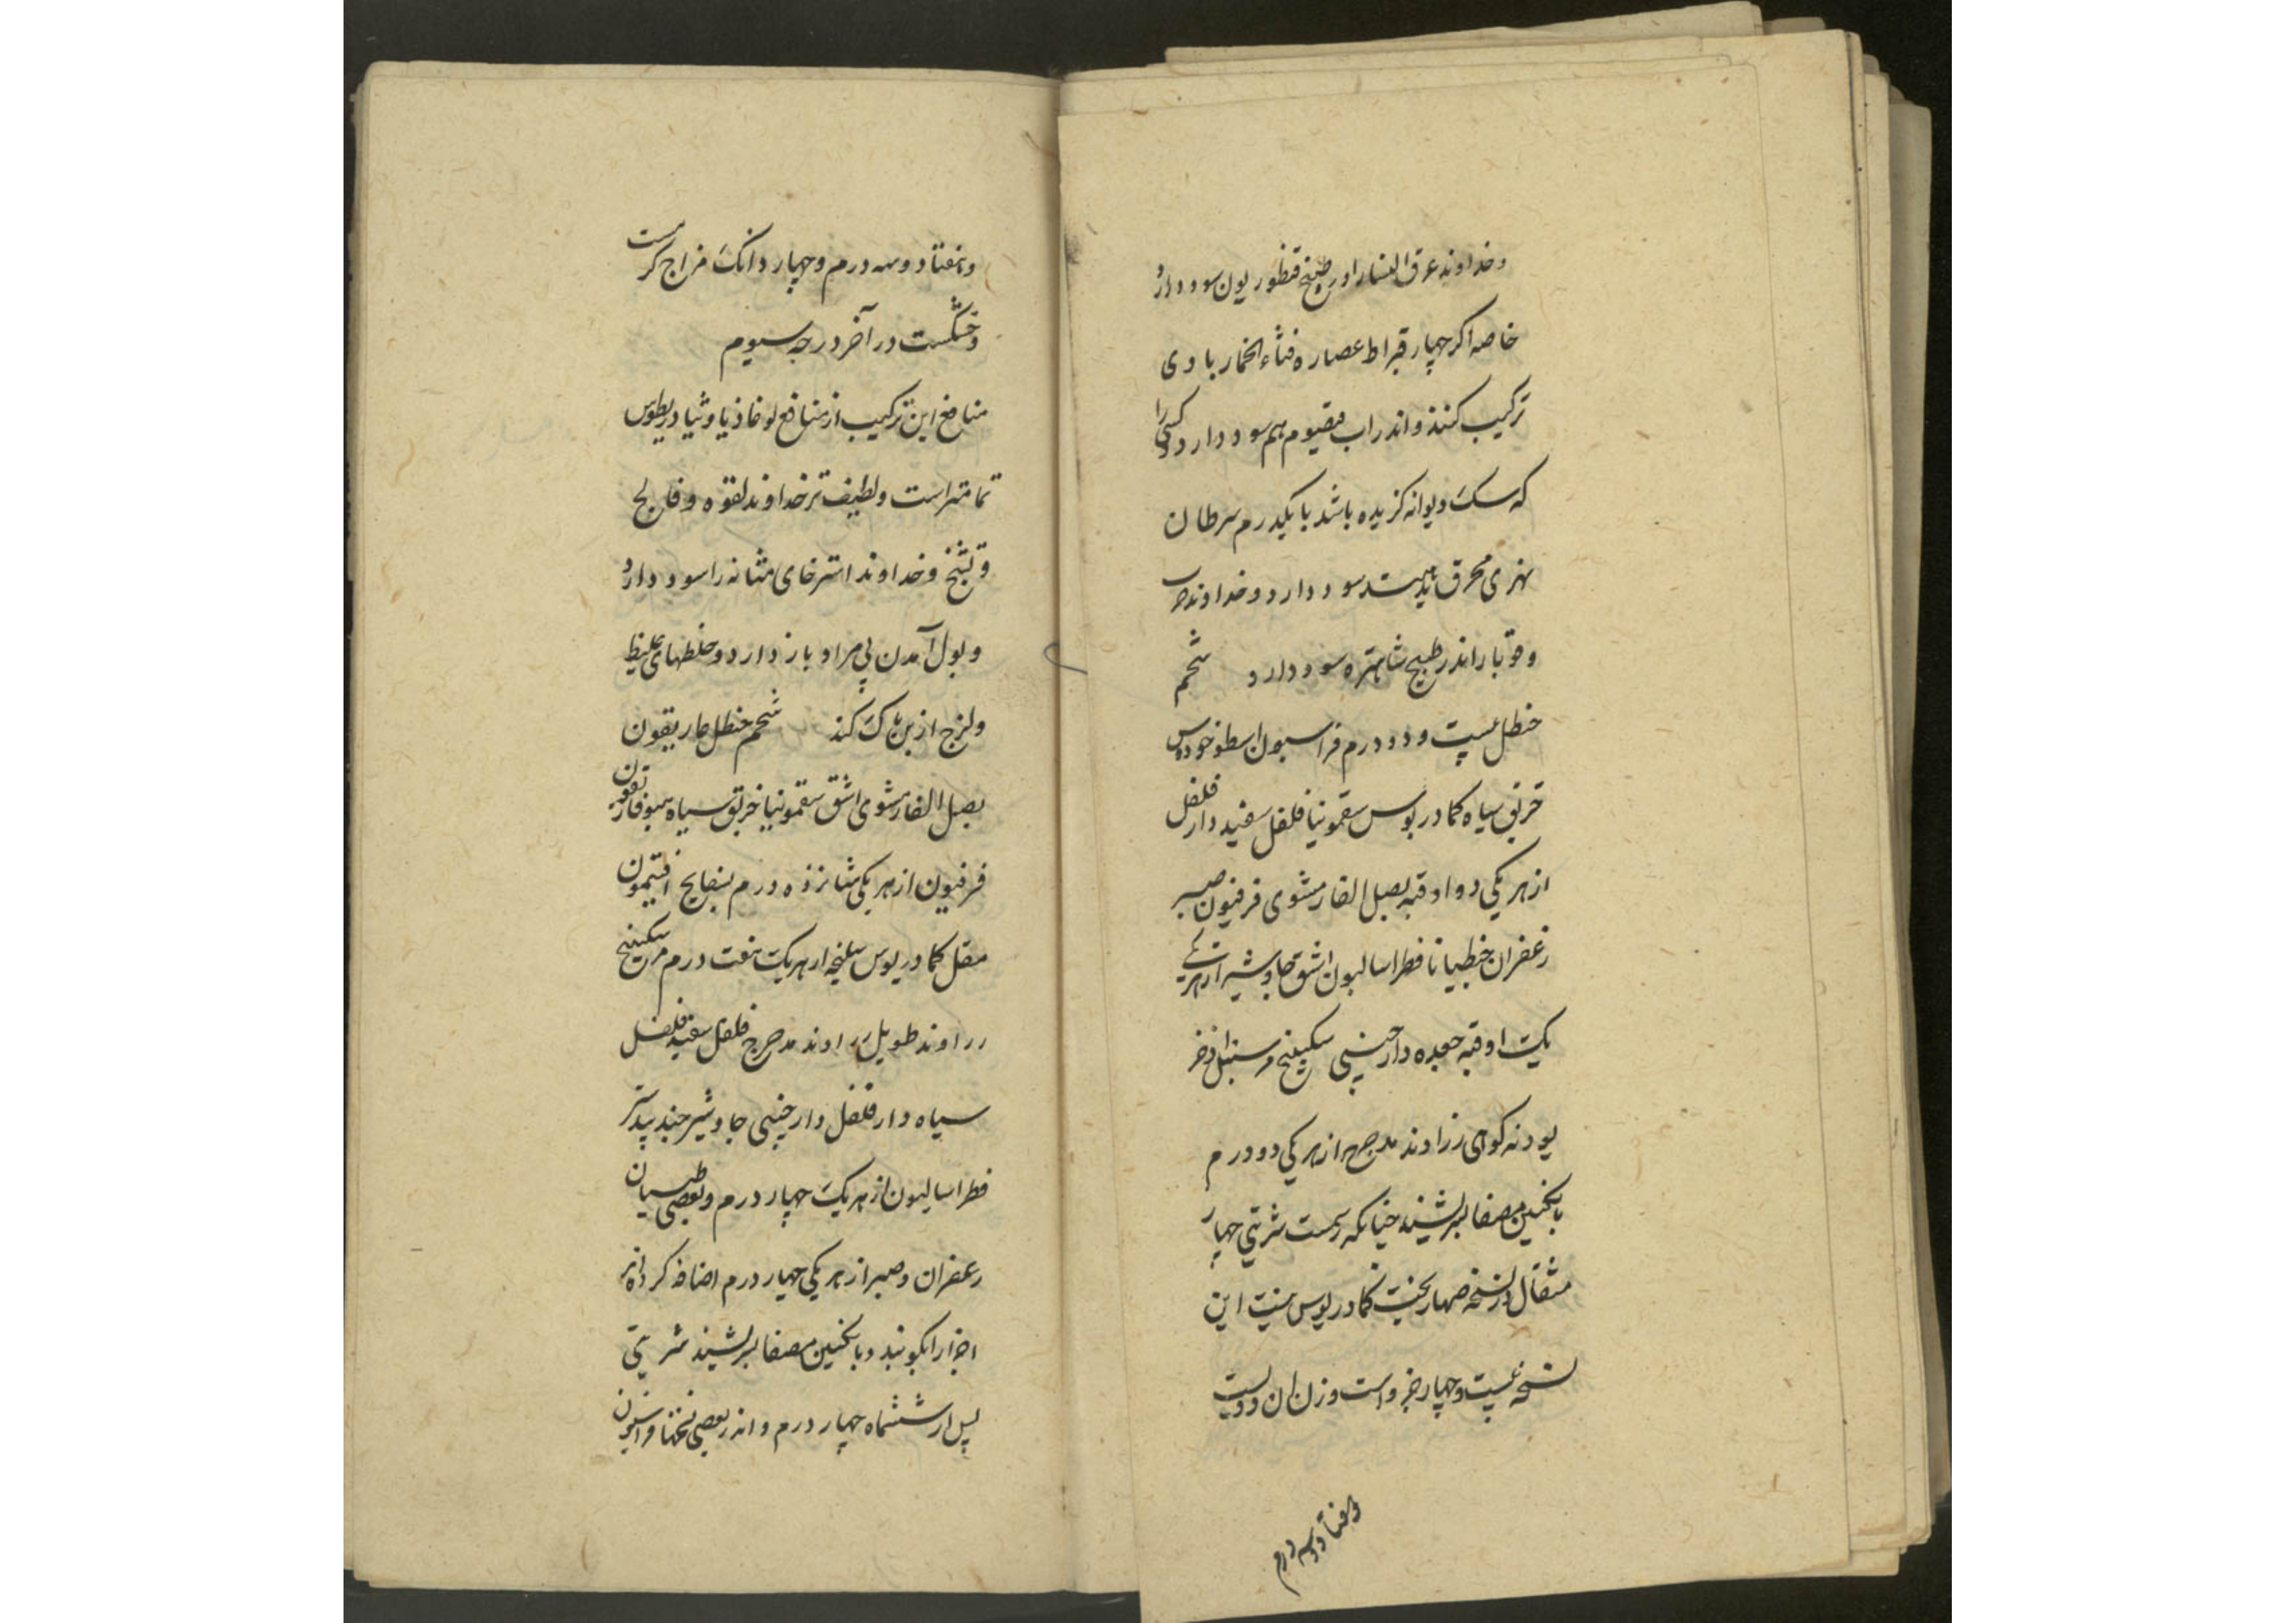 و خداوند عرق النسا را در طبیخ قنطوریون سود دارد
خاصه اکر چهار قیراط عصاره قثاء الحمار با وی
ترکیب کنند و اندر اب قیصوم هم سود دارد و کسی را
که سک دیوانه کزیده باشد با یکدرم سرطان
نهری محرق بدهند سود دارد و خداوند جرب
و قوبا را اندر طبیخ شاهتره سود دارد شحم
حنظل بیست و دو درم فراسیون اسطوخودوس
خربق سیاه کمادریوس سقمونیا فلفل سفید دار فلفل
از هر یکی دو اوقیه بصل الفار مشوی فرفیون صبر
زعفران جنطیانا فطراسالیون اشق جاوشیر از هر یکی
یک اوقیه جعده دارچینی سکبینج مر سنبل اذخر
پودنه کوهی زراوند مدحرج از هر یکی دو درم
بانکبین مصفا بسرشند چنانکه رسمست شربتی چهار
مثقال و در نسخه کمادریوس نیست این
نسخه بیست و چهار جزو است وزن ان دویست
و هفتاد و سه درم
و هفتاد و سه درم و چهار دانک مزاج کرمست
و خشکست در آخر درجه سیوم
منافع این ترکیب از منافع لوغاذیا و ثیادریطوس
تمامتر است و لطیف تر خداوند لقوه و فالج
و تشنج و خداوند استرخای مثانه را سود دارد
و بول آمدن بی مراد باز دارد و خلطهای غلیظ
و لزج از بن پاک کند شحم حنظل غاریقون
بصل الفار مشوی اشق سقمونیا خربق سیاه هیوفاریقون
فرفیون از هر یکی شانزده درم بسفایج افتیمون
مقل کمادریوس سلیخه از هر یک هفت درم مر سکبینج
زراوند طویل زراوند مدحرج فلفل سفید فلفل
سیاه دار فلفل دارچینی جاوشیر جندبیدستر
فطراسالیون از هر یک چهار درم و بعضی طبیبان
زعفران و صبر از هر یکی چهار درم اضافه کرده اند
اجزا را بکوبند و بانکبین مصفا بسرشند شربتی
پس از ششماه چهار درم و اندر بعضی نسختها فراسیون